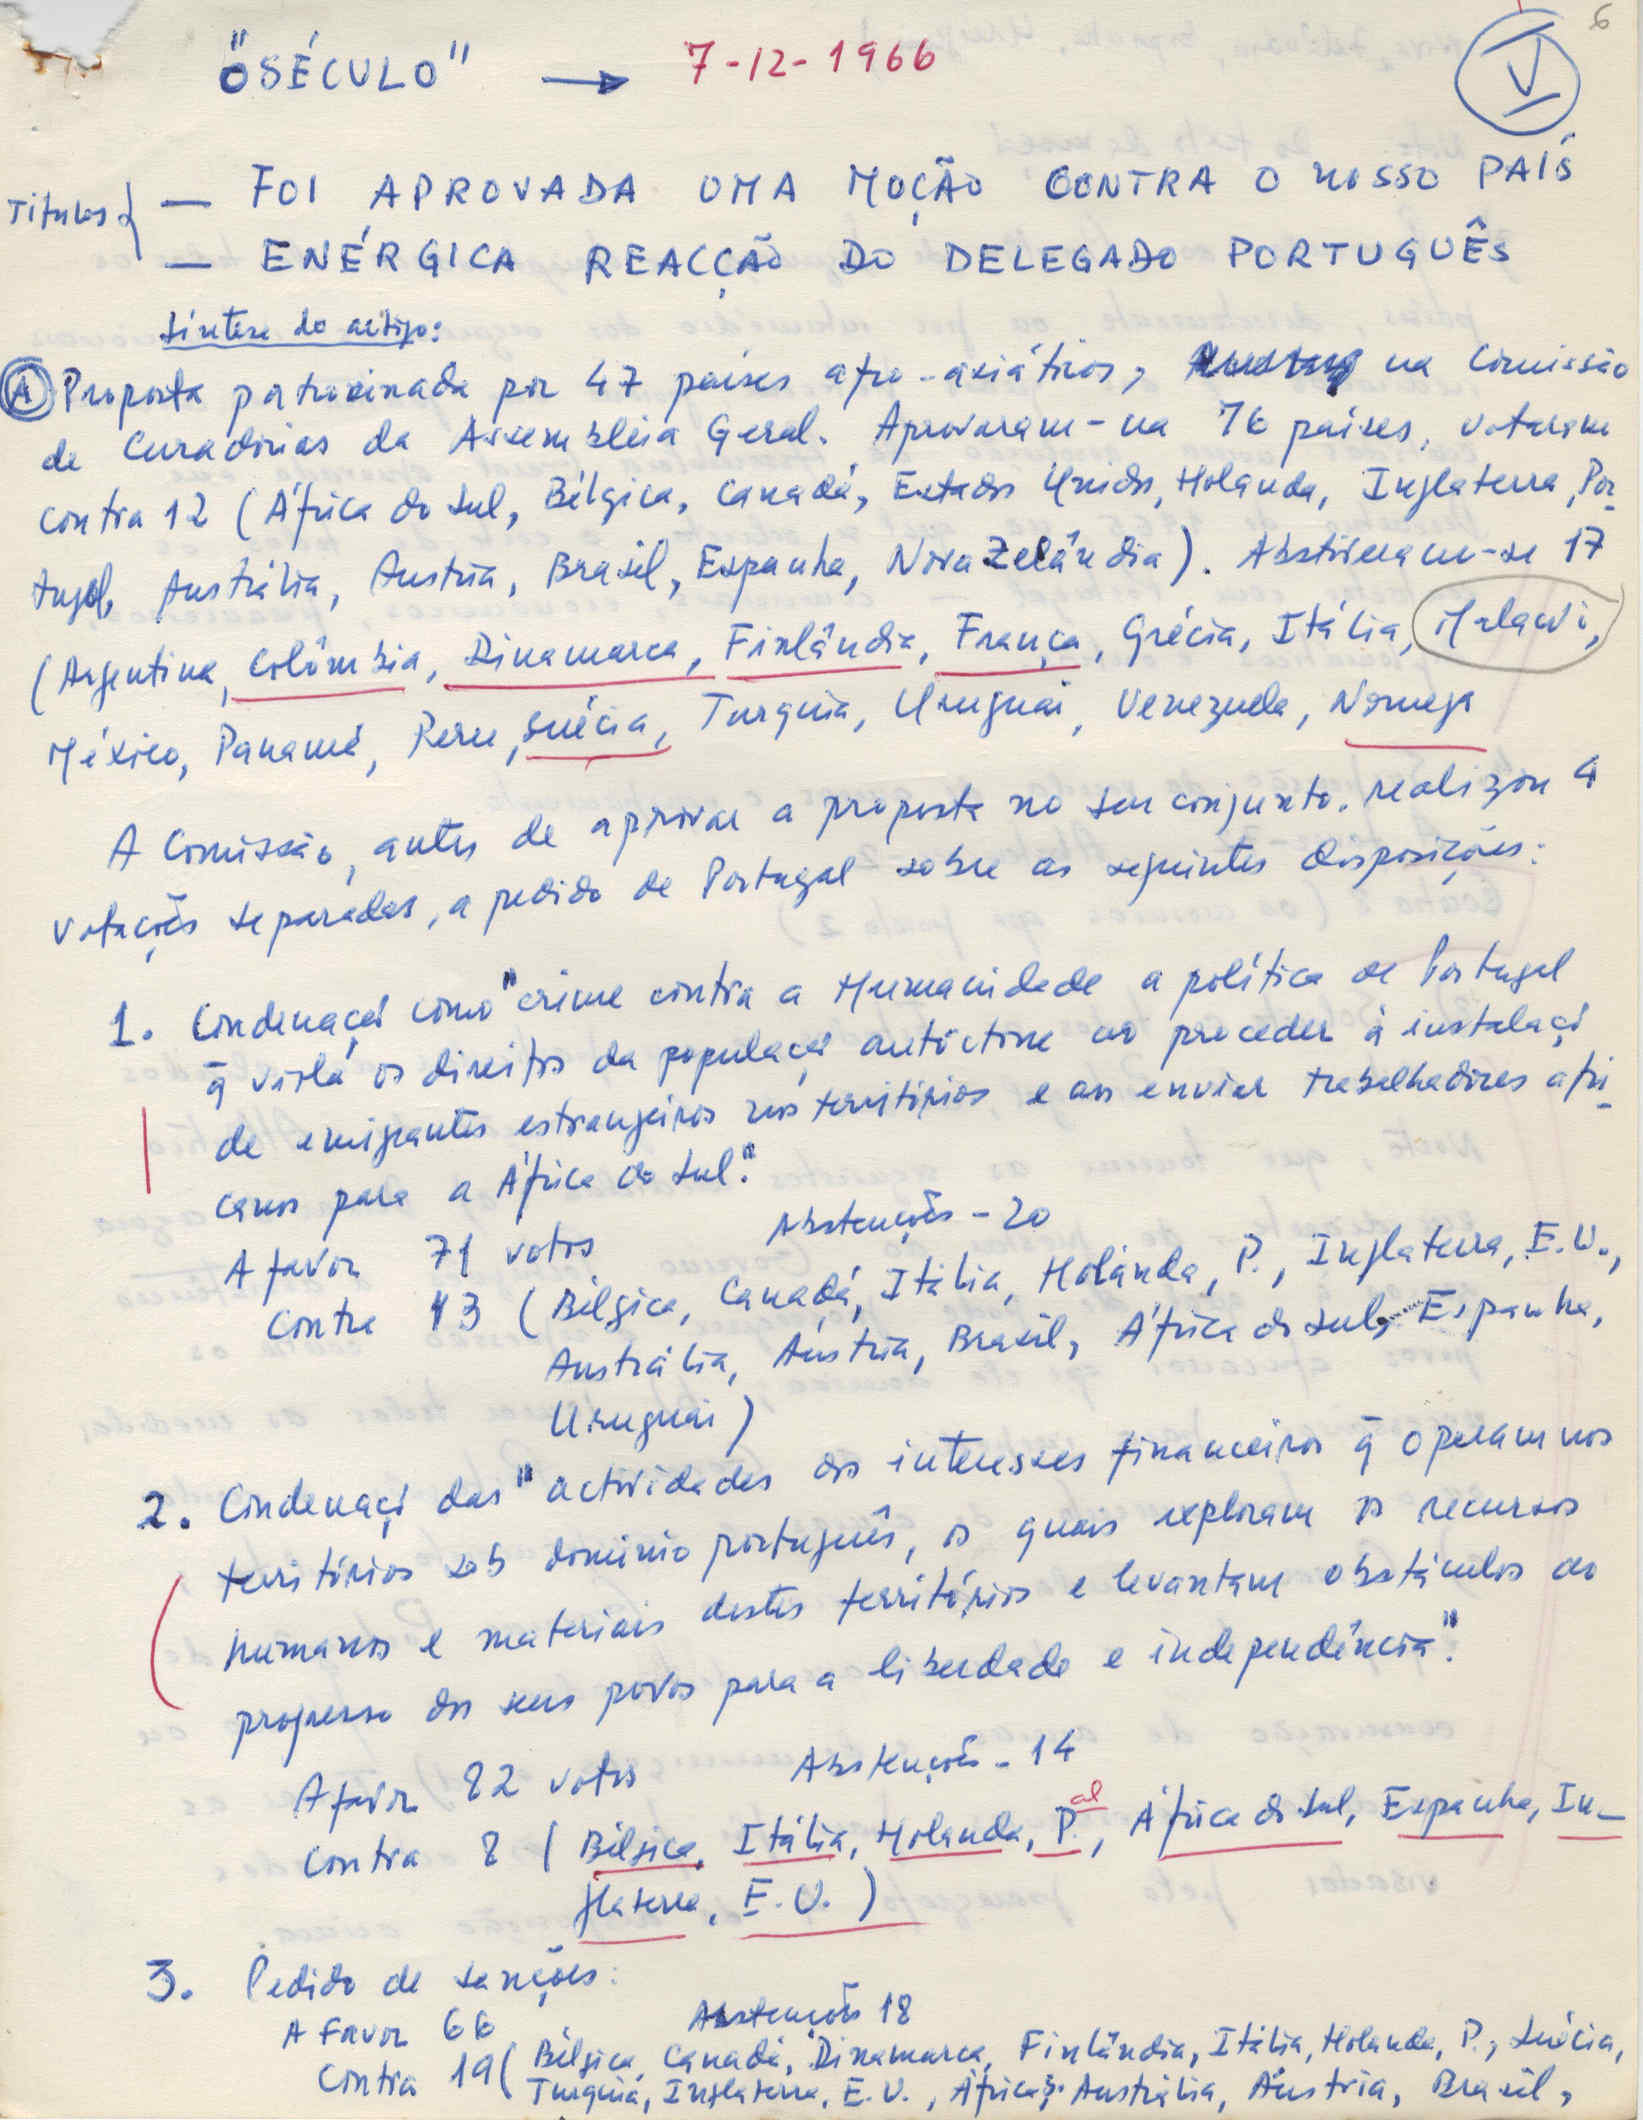 6
V
"O SÉCULO" → 7-12-1966
Titulos { — FOI APROVADA UMA MOÇÃO CONTRA O NOSSO PAÍS
— ENÉRGICA REACÇÃO DO DELEGADO PORTUGUÊS
Síntese do artigo:
(A) Proposta patrocinada por 47 países afro-asiáticos, na Comissão
de Curadorias da Assembleia Geral. Aprovaram-na 76 países, votaram
contra 12 (África do Sul, Bélgica, Canadá, Estados Unidos, Holanda, Inglaterra, Por-
tugal, Austrália, Austria, Brasil, Espanha, Nova Zelândia). Abstiveram-se 17
(Argentina, Colômbia, Dinamarca, Finlândia, França, Grécia, Itália, Malawi,
México, Panamá, Peru, Suécia, Turquia, Uruguai, Venezuela, Noruega
A Comissão, antes de aprovar a proposta no seu conjunto. realizou 4
votações separadas, a pedido de Portugal sobre as seguintes disposições:
1. Condenaçã como "crime contra a Humanidade a política de Portugal
q̃ viola os direitos da populaçã autóctone ao proceder à instalaçã
de emigrantes estrangeiros nos territórios e ao enviar trabalhadores afri-
canos para a África do Sul".
A favor 71 votos Abstenções - 20
Contra 13 (Bélgica, Canadá, Itália, Holanda, P., Inglaterra, E.U.,
Austrália, Áustria, Brasil, África do Sul, Espanha,
Uruguai)
2. Condenaçã das "actividades dos interesses financeiros q̃ operam nos
territórios sob dominio português, os quais exploram os recursos
humanos e materiais destes territórios e levantam obstáculos ao
progresso dos seus povos para a liberdade e independência".
A favor 82 votos Abstenções - 14
Contra 8 (Bélgica, Itália, Holanda, P.al, África do Sul, Espanha, In-
glaterra, E.U.)
3. Pedido de sanções:
A favor 66 Abstenções 18
Contra 19 (Bélgica, Canadá, Dinamarca, Finlândia, Itália, Holanda, P., Suécia,
Turquia, Inglaterra, E.U., África S. Austrália, Áustria, Brasil,